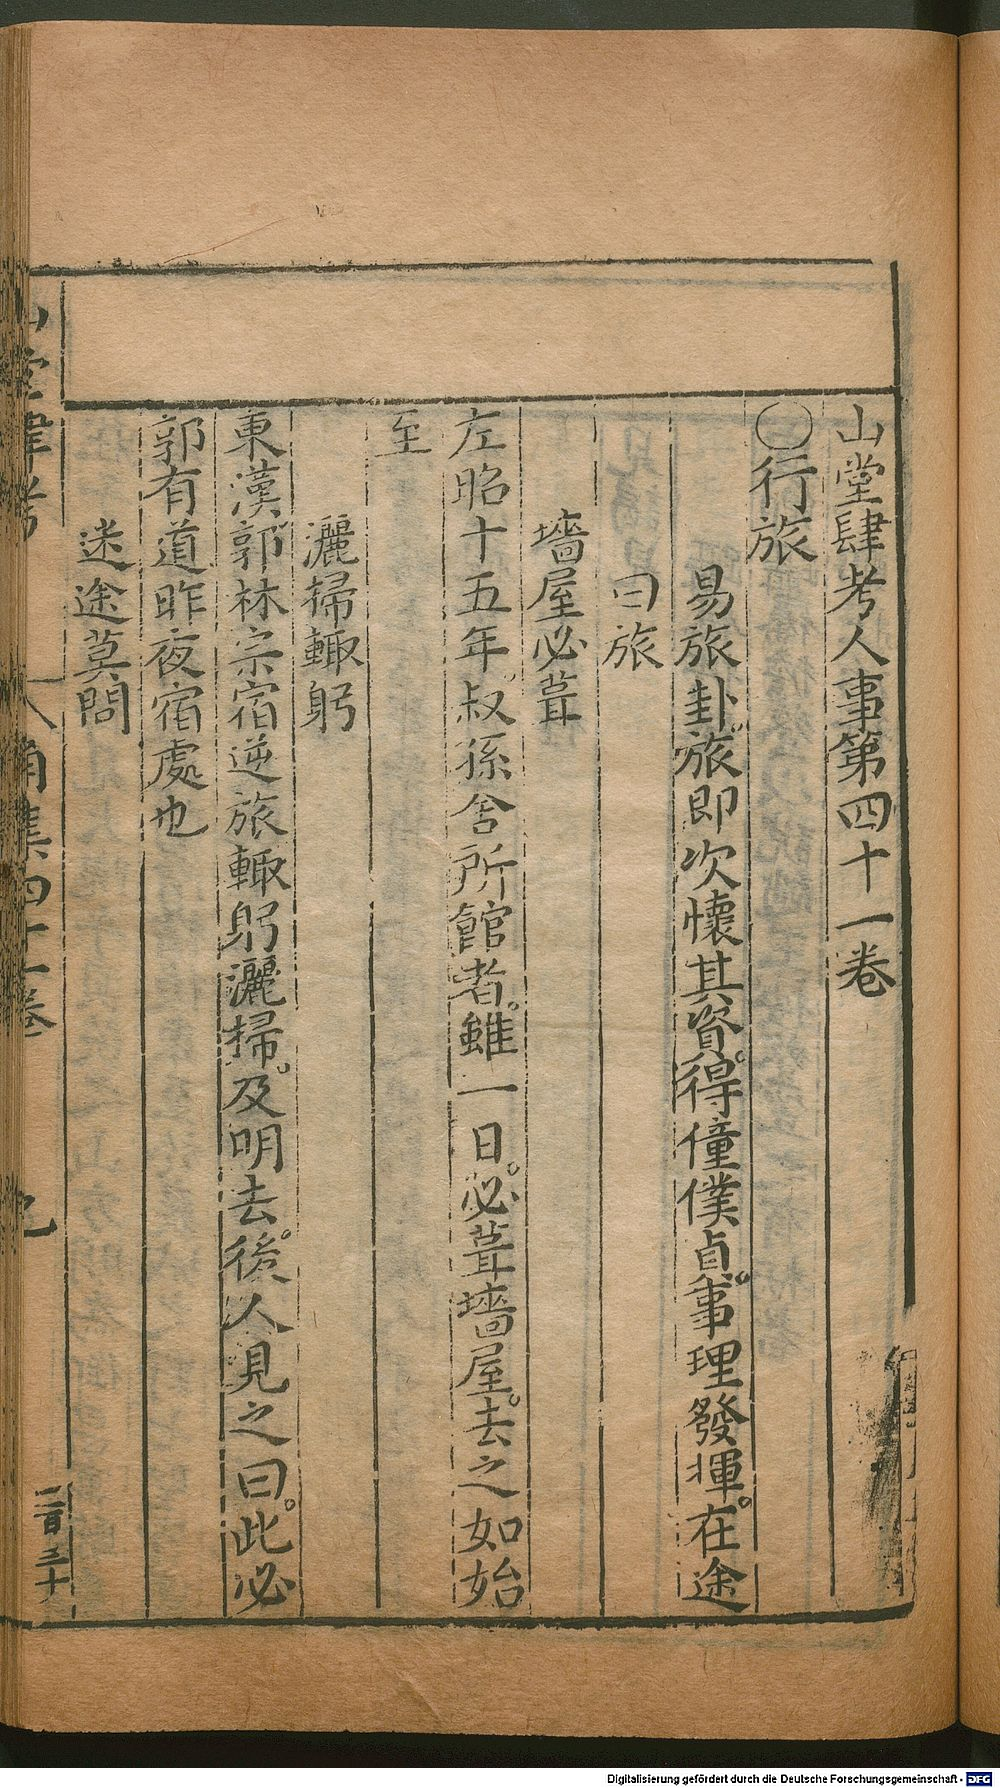 山堂肆考人事第四十一卷
○行旅
易旅卦。旅即次懷其資。得僮僕貞。事理發揮。在途
曰旅
墻屋必葺
左昭十五年。叔孫舍所館者。雖一日。必葺墻屋。去之如始
至
灑掃輙躬
東漢郭林宗宿逆旅輙躬灑掃。及明去。後人見之曰。此必
郭有道昨夜宿處也
迷途莫問
山堂肆考
角集四十一卷
二百三十
Digitalisierung gefördert durch die Deutsche Forschungsgemeinschaft - DFG